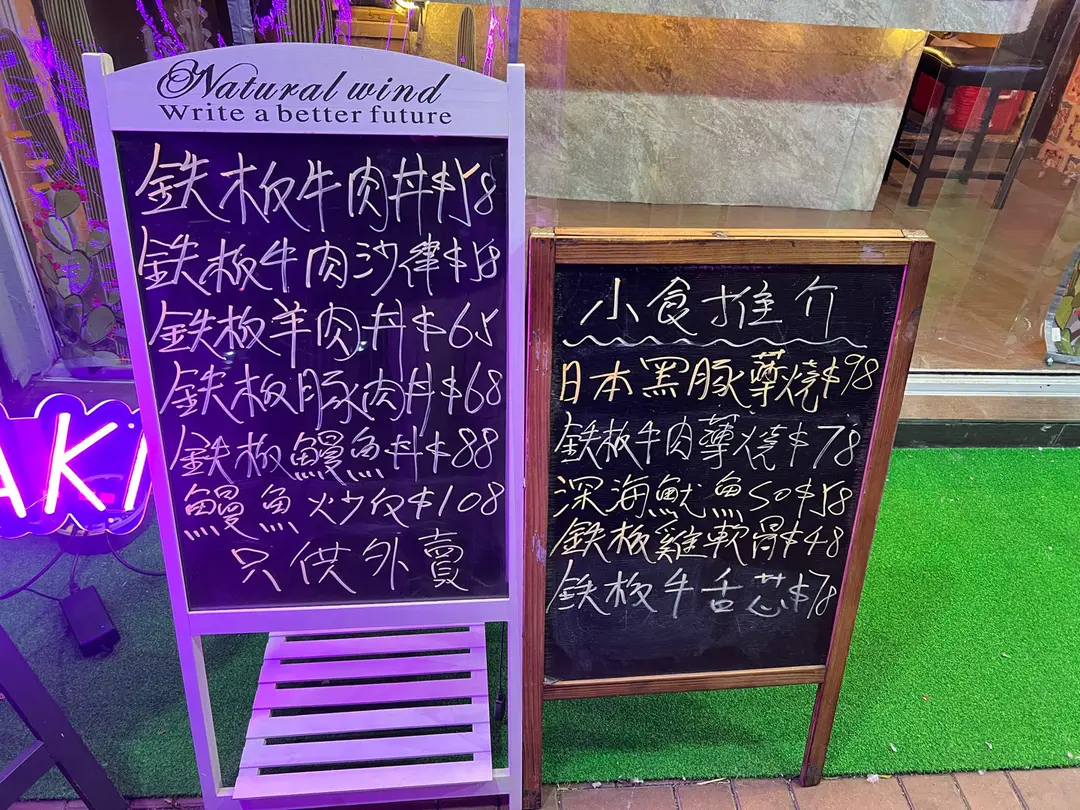 Natural wind
Write a better future
鉄板牛肉丼$58
鉄板牛肉沙律$58
鉄板羊肉丼$65
鉄板豚肉丼$68
鉄板鰻魚丼$88
鰻魚炒飯$108
只供外賣
AKI
小食推介
日本黑豚薑燒$98
鉄板牛肉薑燒$78
深海魷魚 $58
鉄板雞軟骨$48
鉄板牛舌芯$78